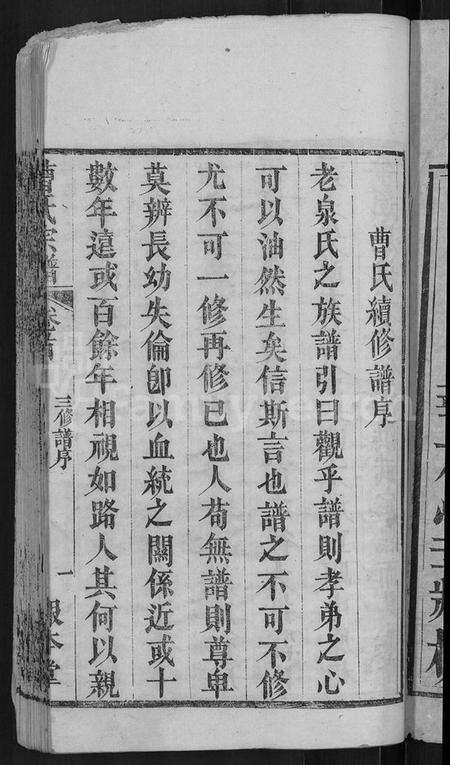 曹氏續修譜序
老泉氏之族譜引曰觀乎譜則孝弟之心
可以油然生矣信斯言也譜之不可不修
尤不可一修再修已也人苟無譜則尊卑
莫辨長幼失倫卽以血統之關係近或十
數年遠或百餘年相視如路人其何以親
曹氏宗譜 卷首 三修譜序 一 敬本堂